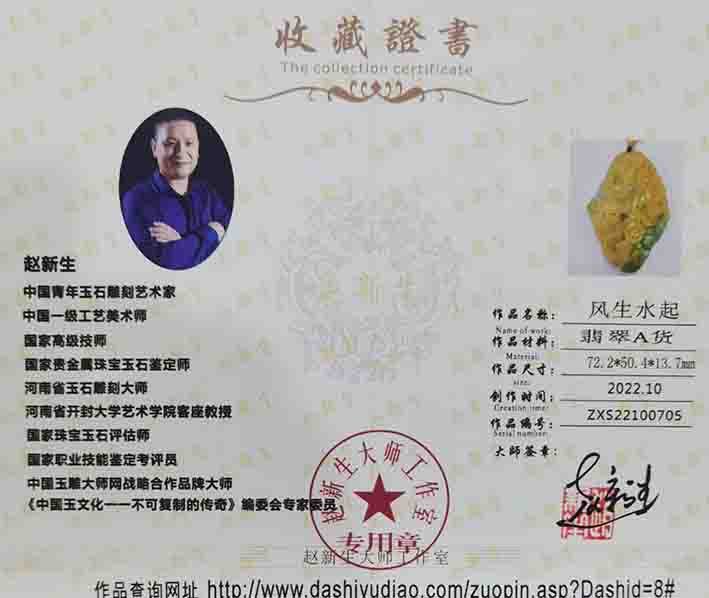 收藏證書
The collection certificate
赵新生
中国青年玉石雕刻艺术家
中国一级工艺美术师
国家高级技师
国家贵金属珠宝玉石鉴定师
河南省玉石雕刻大师
河南省开封大学艺术学院客座教授
国家珠宝玉石评估师
国家职业技能鉴定考评员
中国玉雕大师网战略合作品牌大师
《中国玉文化一一不可复制的传奇》编委会专家委员
作品名称： 风生水起
Name of work:
作品材料： 翡翠A货
Material:
作品尺寸： 72.2*50.4*13.7mm
size:
创作时间： 2022.10
Creation time:
作品编号： ZXS22100705
Serial number:
大師签章：
赵新生
赵新生大师工作室
专用章
赵新生大师工作室
作品查询网址 http://www.dashiyudiao.com/zuopin.asp?Dashid=8#